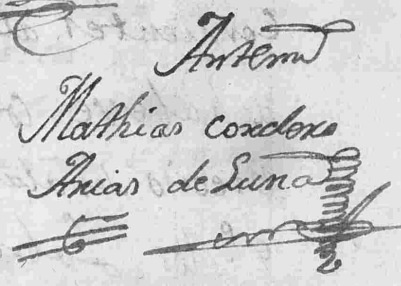 Antemi
Mathias cordero
Arias de Luna